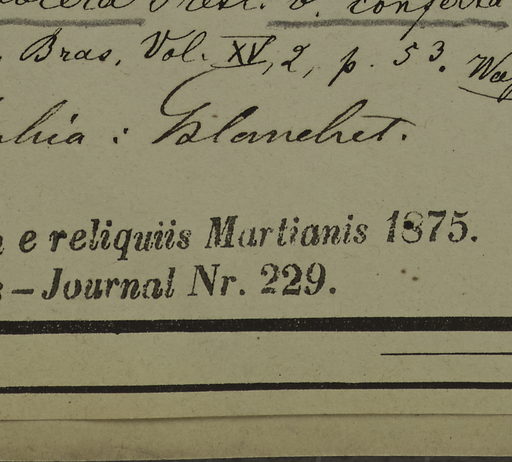 Presl. v. conferta
Bras. Vol. XV, 2, p. 53.
hia : Blanchet.
e reliquiis Martianis 1875.
– Journal Nr. 229.